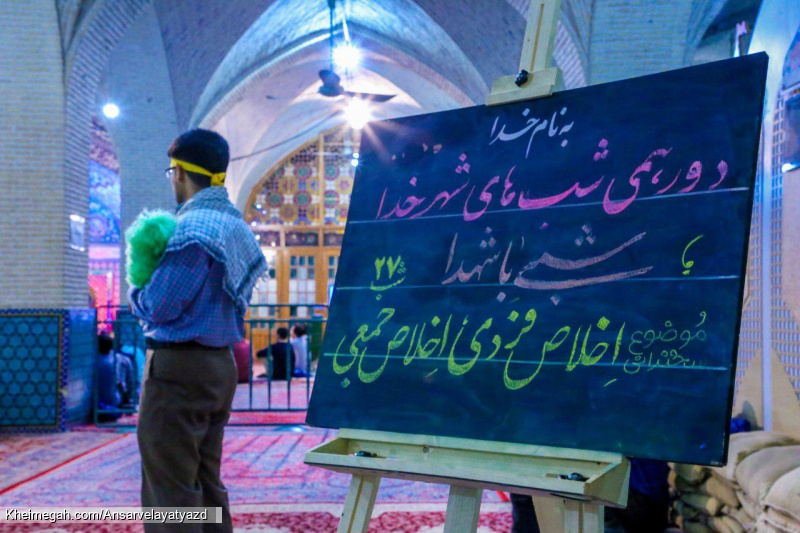 به نام خدا
دورهمی شب های شهر خدا
شبی با شهدا
شب ۲۷
موضوع سخنرانی
اخلاص فردی، اخلاص جمعی
Kheimegah.com/Ansarvelayatyazd